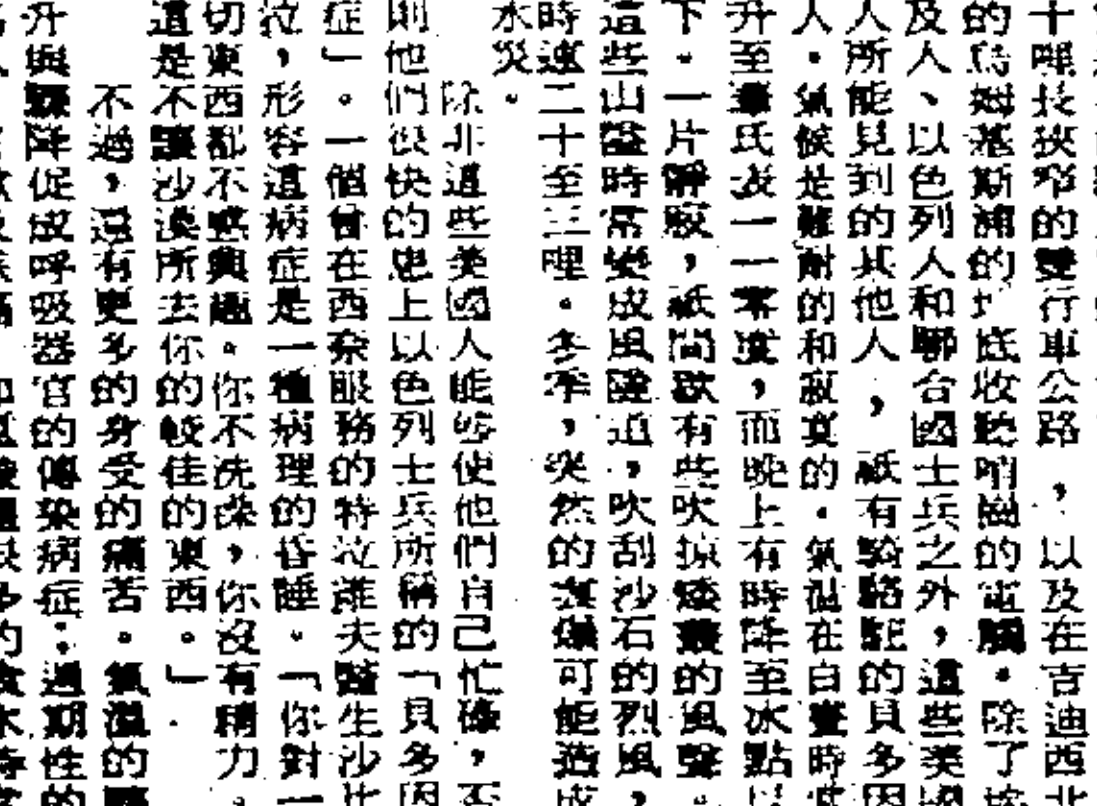 十哩長狹窄的雙行車公路，以及在吉迪西北
的烏姆基斯浦的　底收聽哨崗的電觸。除了按
及人、以色列人和聯合國士兵之外，這些美國
人所能見到的其他人，祇有騎駱駝的貝多因
人。氣候是難耐的和寂寞的。氣溫在白晝時常
升至華氏表一一零度，而晚上有時降至冰點以
下。一片靜寂，祇間歇有些吹掠矮叢的風聲。
這些山隘時常變成風隧道，吹刮沙石的烈風，
時速二十至三哩。冬季，突然的　　可能造成
水災。
除非這些美國人能夠使他們自己忙碌，否
則他們很快的患上以色列士兵所稱的「貝多因
症」。一個曾在西奈服務的特拉維夫醫生沙比
拉，形容這病症是一種病理的昏睡。「你對一
切東西都不感興趣。你不洗澡，你沒有精力。
這是不讓沙漠所去你的較佳的東西。」
不過，還有更多的身受的痛苦。氣溫的
升與驟降促成呼吸器官的傳染病症；週期性的